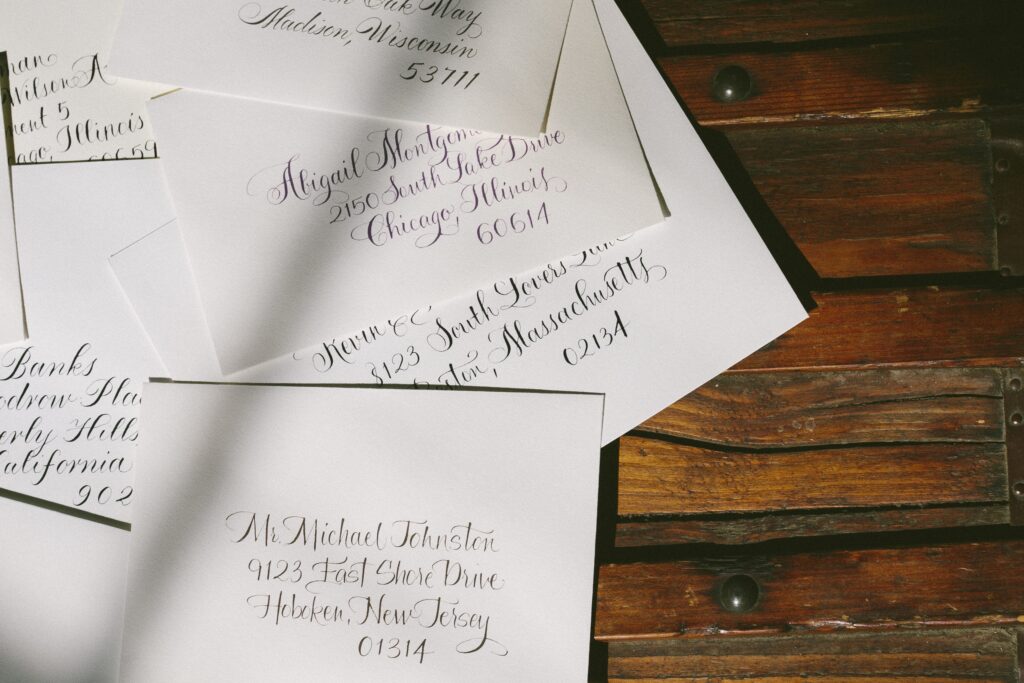 Oak Way
Madison, Wisconsin
53711
Wilson A
5
Illinois
60659
Abigail
2150 South Lake Drive
Chicago, Illinois
60614
Kevin
8123 South Lovers
Massachusetts
02134
Banks
Hills
California
902
Mr. Michael Johnston
9123 East Shore Drive
Hoboken, New Jersey
01314